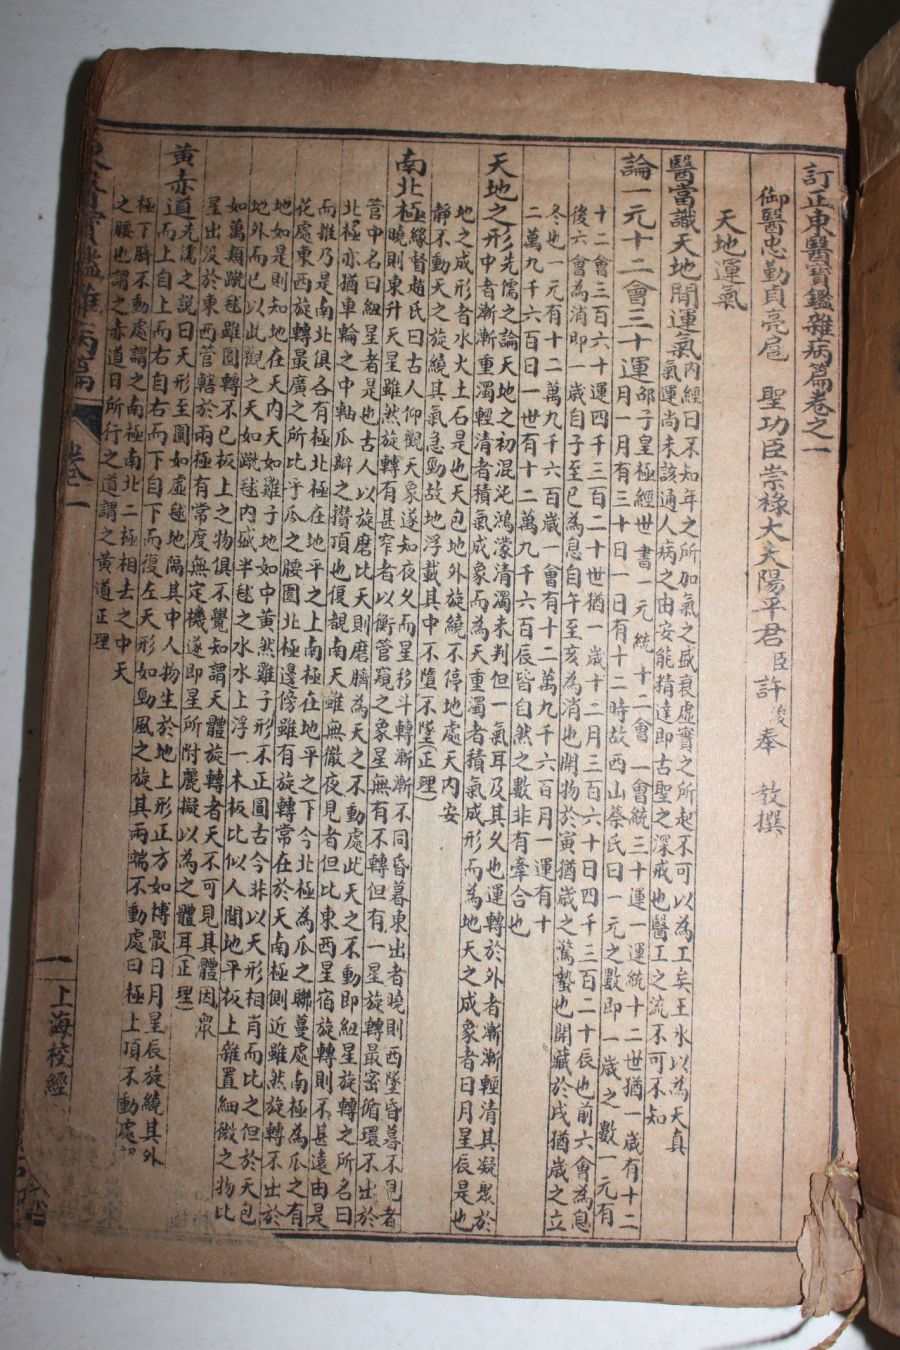 訂正東醫寶鑑雜病篇卷之一
御醫忠勤貞亮扈 聖功臣崇祿大夫陽平君臣許浚奉 教撰
天地運氣
醫當識天地間運氣
內經曰不知年之所加氣之盛衰虛實之所起不可以為工矣王氷以為天真
氣運尚未該通人病之由安能精達即古聖之深戒也醫工之流不可不知
論一元十二會三十運
邵子皇極經世書一元統十二會一會統三十運一運統十二世猶一歲有十二
月一月有三十日一日有十二時故西山蔡氏曰一元之數即一歲之數一元有
十二會三百六十運四千三百二十世猶一歲十二月三百六十日四千三百二十辰也前六會為息
後六會為消即一歲自子至巳為息自午至亥為消也開物於寅猶歲之驚蟄也閉藏於戌猶歲之立
冬也一元有十二萬九千六百歲一會有十二萬九千六百月一運有十
二萬九千六百日一世有十二萬九千六百辰皆自然之數非有牽合也
天地之形
先儒之論天地之初混沌鴻濛清濁未判但一氣耳及其久也運轉於外者漸漸輕清其凝聚於
中者漸漸重濁輕清者積氣成象而為天重濁者積氣成形而為地天之成象者日月星辰是也
地之成形者水火土石是也天包地外旋繞不停地處天內安
靜不動天之旋繞其氣急勁故地浮載其中不墮(不墜)(正理)
南北極
緣督趙氏曰古人仰觀天象遂知夜久而星移斗轉漸漸不同昏暮東出者曉則西墜昏暮不見者
曉則東升天星雖然旋轉有甚窄者以衡管窺之象星無有不轉但有一星旋轉最密循環不出於
管中名曰紐星者是也古人以旋磨比天則磨臍為天之不動處此天之不動即紐星旋轉之所名曰
北極亦猶車輪之中軸瓜瓣之攢頂也復覩南天雖無徹夜見者但比東西星宿旋轉則不甚遠由是
而推乃是南北俱各有極北極在地平之上南極在地平之下今北極為瓜之聯蔓處南極為瓜之有
花處東西旋轉最廣之所比乎瓜之腰圍北極邊傍雖有旋轉常在於天南極側近雖然旋轉不出於
地如是則知地在天內天如雞子地如中黃然雞子形不正圓古今非以天形相肖而比之但於天包
地外而已以此觀之天如蹴毬內盛半毬之水水上浮一木板比似人間地平板上雜置細微之物比
如萬類蹴毬雖圓轉不已板上之物俱不覺知謂天體旋轉者天不可見其體因眾
星出沒於東西管轄於兩極有常度無定機遂即星所附麗擬以為之體耳(正理)
黃赤道
先濡之說曰天形至圓如虛毬地隔其中人物生於地上形正方如博骰日月星辰旋繞其外
而上自上而右自右而下自下而復左天形如勁風之旋其兩端不動處曰極上頂不動處
極下臍不動處謂之南極南北二極相去之中天
之腰也謂之赤道日所行之道謂之黃道正理
東醫寶鑑雜病篇 卷一
一
上海校經